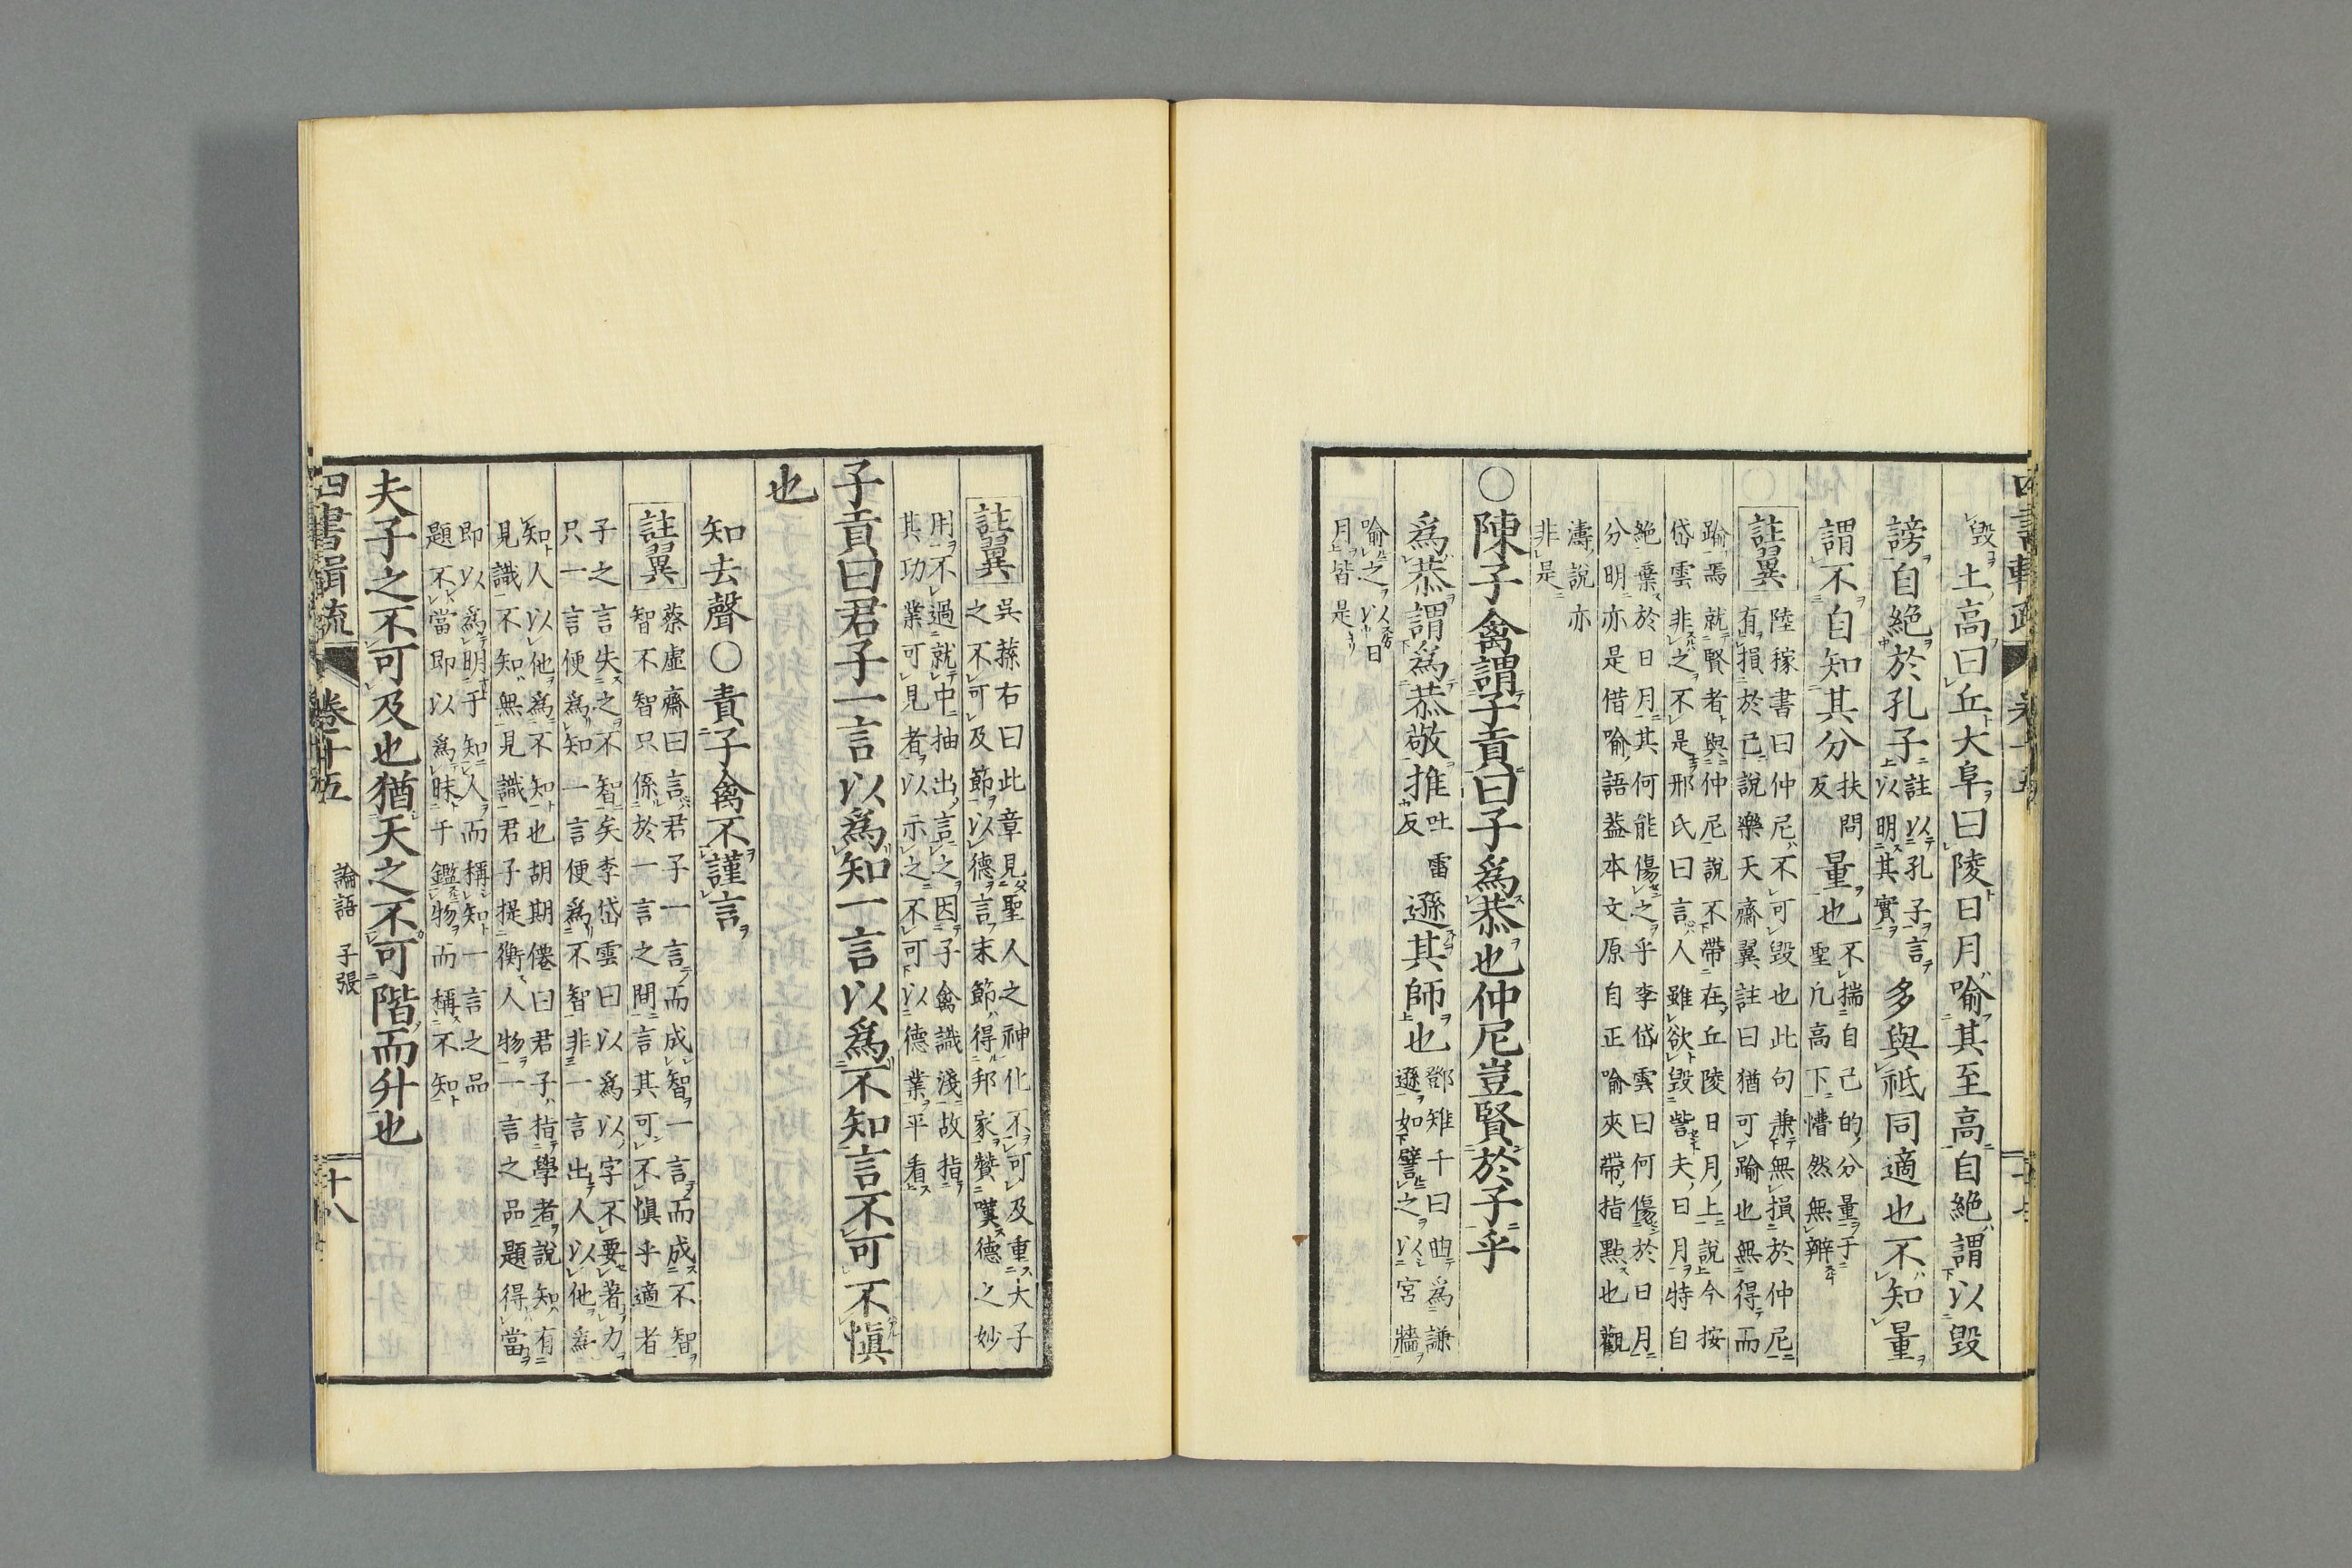 毀土高曰丘大阜曰陵日月喻其至高自絶謂以毀
謗自絶於孔子註以孔子言
以明其實
多與祗同適也不知量
謂不自知其分
扶問
反
量也
不揣自己的分量于
聖凡高下懵然無辨
註翼
陸稼書曰仲尼不可毀也此句兼無損於仲尼
有損於己說樂天齋翼註曰猶可踰也無得而
踰焉就賢者與仲尼說不帶在丘陵日月上說今按
岱雲非之不是邢氏曰言人雖欲毀訾夫日月特自
絶棄於日月其何能傷之乎李岱雲曰何傷於日月
分明亦是借喻語葢本文原自正喻夾帶指點也觀
濤說亦
非是
○陳子禽謂子貢曰子爲恭也仲尼豈賢於子乎
爲恭謂爲恭敬推
吐雷
反
遜其師也
鄧雉千曰曲爲謙
遜如譬之以宮牆
喻之以日
月皆是
註翼
吳蓀右曰此章見聖人之神化不可及重夫子
之不可及節以德言末節得邦家贊嘆德之妙
用不過就中抽出言之因子禽識淺故指
其功業可見者以示之不可以德業平看
子貢曰君子一言以爲知一言以爲不知言不可不愼
也
知去聲○責子禽不謹言
註翼
蔡虛齋曰言君子一言而成智一言而成不智
智不智只係於一言之間言其可不愼乎適者
子之言失之不智矣李岱雲曰以爲以字不要著力
只一言便爲知一言便爲不智非一言出人以他爲
知人以他爲不知也胡期僊曰君子指學者說知有
見識不知無見識君子提衡人物一言之品題得當
即以爲明于知人而稱知一言之品
題不當即以爲昧于鑑物而稱不知
夫子之不可及也猶天之不可階而升也
四書輯疏
卷十五
論語 子張
十八